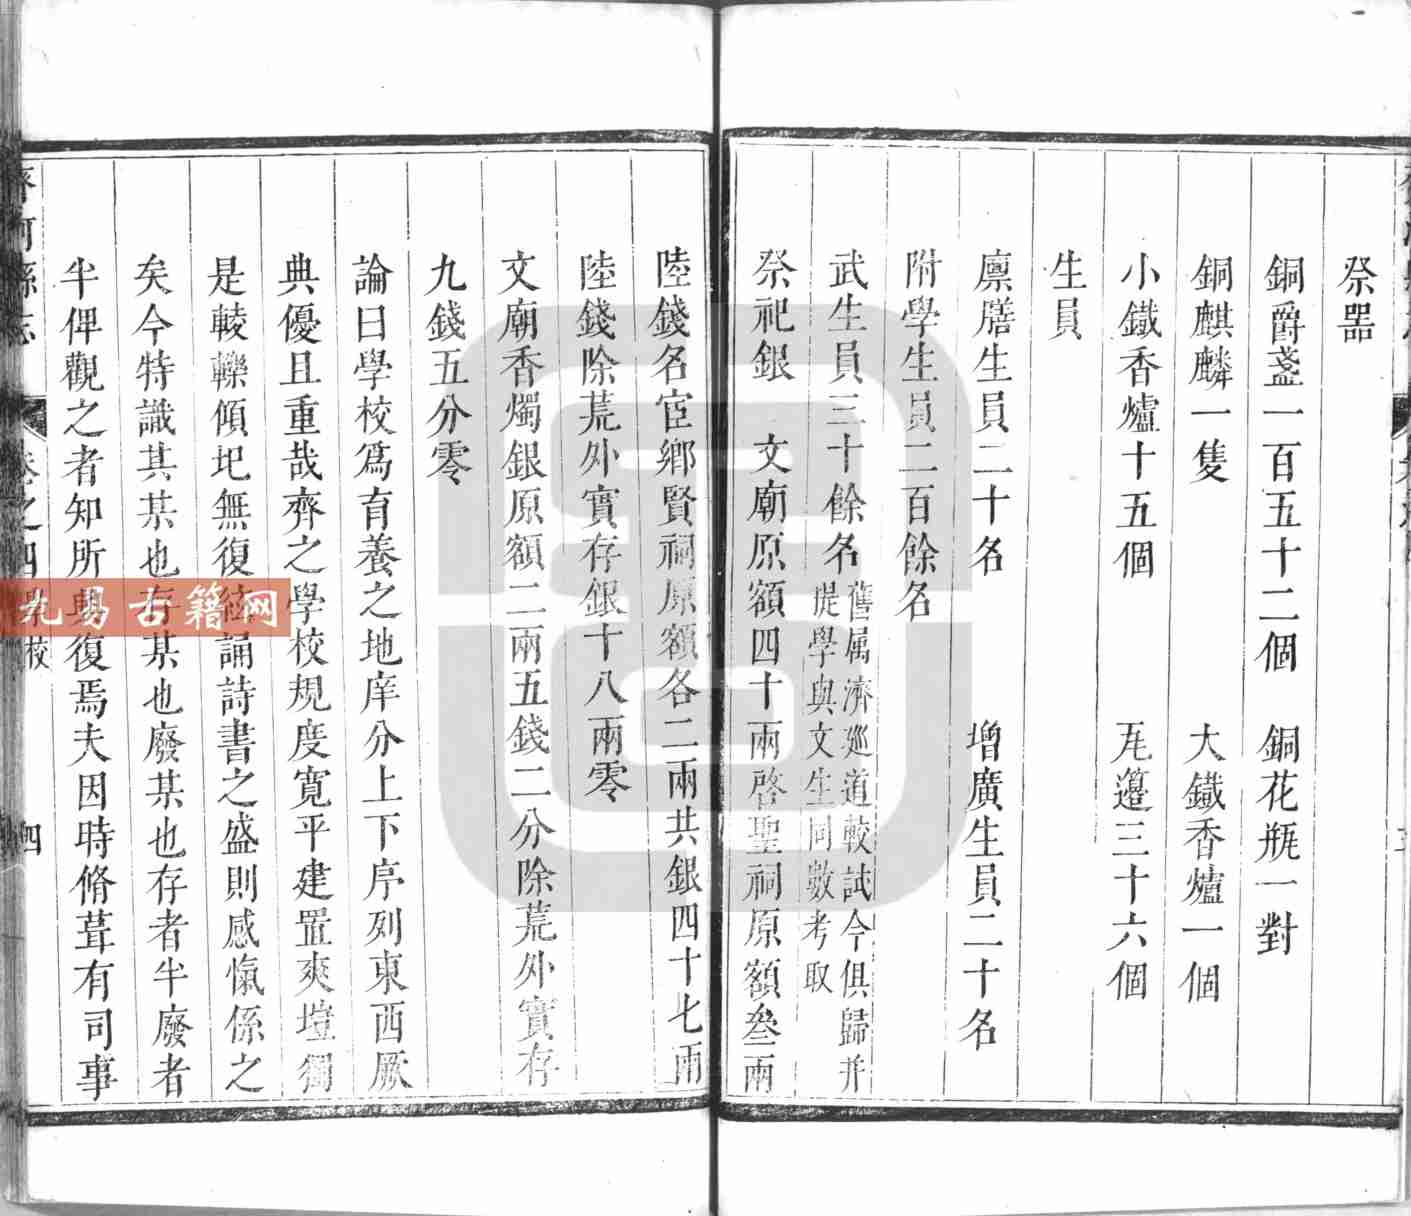 祭器
銅爵盞一百五十二個　銅花瓶一對
銅麒麟一隻　大鐵香爐一個
小鐵香爐十五個　瓦籩三十六個
生員
廪膳生員二十名　增廣生員二十名
附學生員二百餘名
武生員三十餘名舊属濟巡道較試今俱歸并
提學與文生同數考取
祭祀銀　文廟原額四十兩啓聖祠原額叄兩
陸錢名宦鄉賢祠原額各二兩共銀四十七兩
陸錢除荒外實存銀十八兩零
文廟香燭銀原額二兩五錢二分除荒外實存
九錢五分零
論曰學校爲育養之地庠分上下序列東西厥
典優且重哉齊之學校規度寛平建置爽塏獨
是輘轢傾圯無復絃誦詩書之盛則感愾係之
矣今特識其某也存某也廢某也存者半廢者
半俾觀之者知所興復焉夫因時脩葺有司事
齊河縣志
卷之四
校
四
九易古籍网